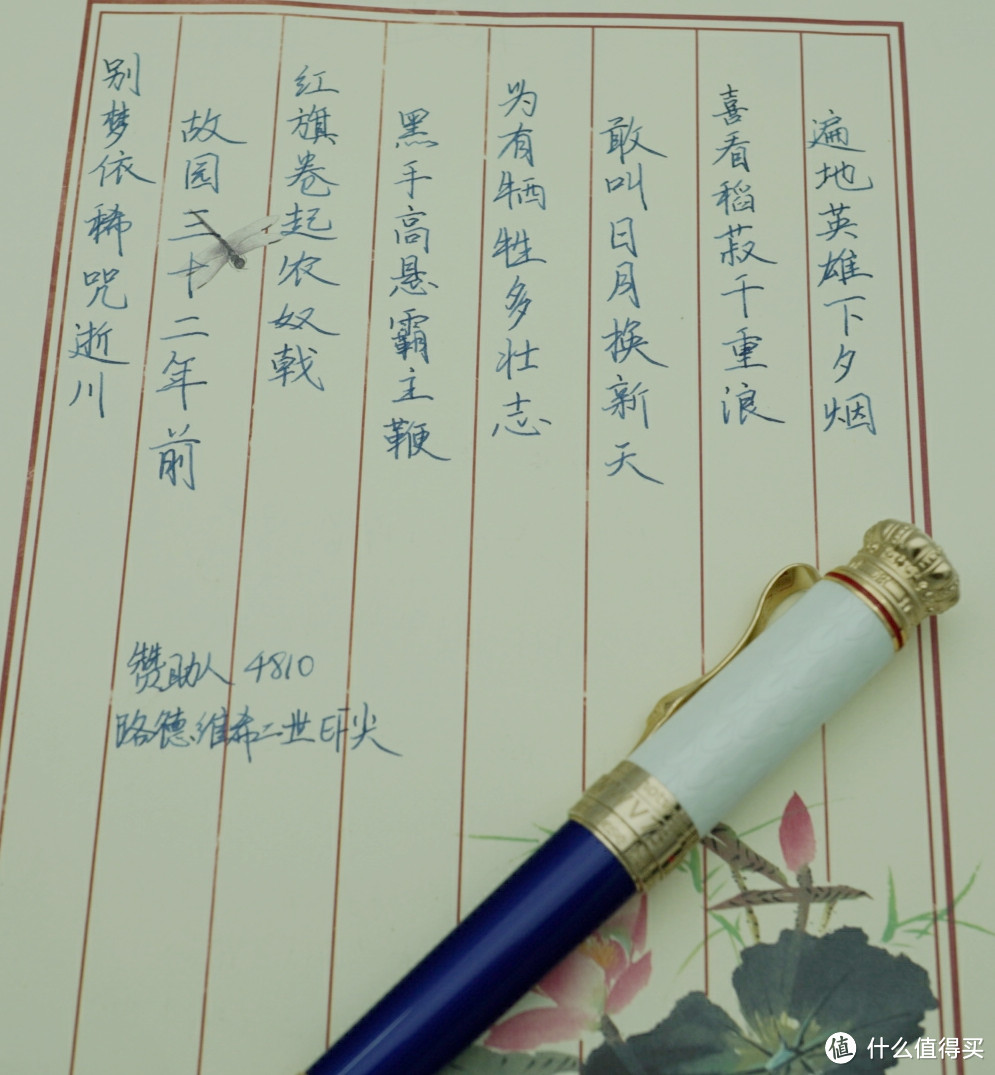 别梦依稀咒逝川
故园三十二年前
红旗卷起农奴戟
黑手高悬霸主鞭
为有牺牲多壮志
敢叫日月换新天
喜看稻菽千重浪
遍地英雄下夕烟
赞助人 4810
路德维希二世EF尖
值 什么值得买